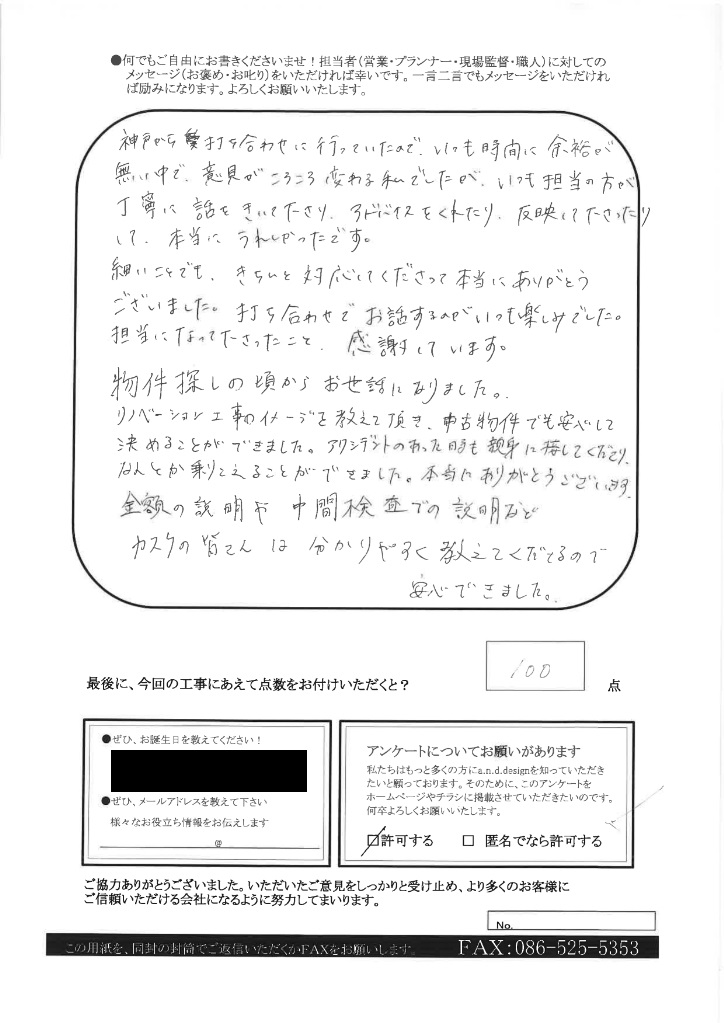 ●何でもご自由にお書きくださいませ！担当者（営業・プランナー・現場監督・職人）に対しての
メッセージ（お褒め・お叱り）をいただければ幸いです。一言二言でもメッセージをいただけれ
ば励みになります。よろしくお願いいたします。
神戸から打ち合わせに行っていたので、いつも時間に余裕が
無い中で、意見がころころ変わる私でしたが、いつも担当の方が
丁寧に話をきいて下さり、アドバイスをくれたり、反映して下さったり
して、本当にうれしかったです。
細いことでも、きちんと対応してくださって本当にありがとう
ございました。打ち合わせでお話するのがいつも楽しみでした。
担当になって下さったこと、感謝しています。
物件探しの頃からお世話になりました。
リノベーション工事のイメージを教えて頂き、中古物件でも安心して
決めることができました。アクシデントのあった時も親身に接してくださり、
なんとか乗りこえることができました。本当にありがとうございます。
金額の説明や中間検査での説明など
カスケの皆さんは分かりやすく教えてくださるので
安心できました。
最後に、今回の工事にあえて点数をお付けいただくと？
100
点
●ぜひ、お誕生日を教えてください！
●ぜひ、メールアドレスを教えて下さい
様々なお役立ち情報をお伝えします
@
アンケートについてお願いがあります
私たちはもっと多くの方にa.n.d.designを知っていただき
たいと願っております。そのために、このアンケートを
ホームページやチラシに掲載させていただきたいのです。
何卒よろしくお願いいたします。
☑許可する　□ 匿名でなら許可する
ご協力ありがとうございました。いただいたご意見をしっかりと受け止め、より多くのお客様に
ご信頼いただける会社になるように努力してまいります。
No.
この用紙を、同封の封筒でご返信いただくかFAXをお願いします。 FAX:086-525-5353